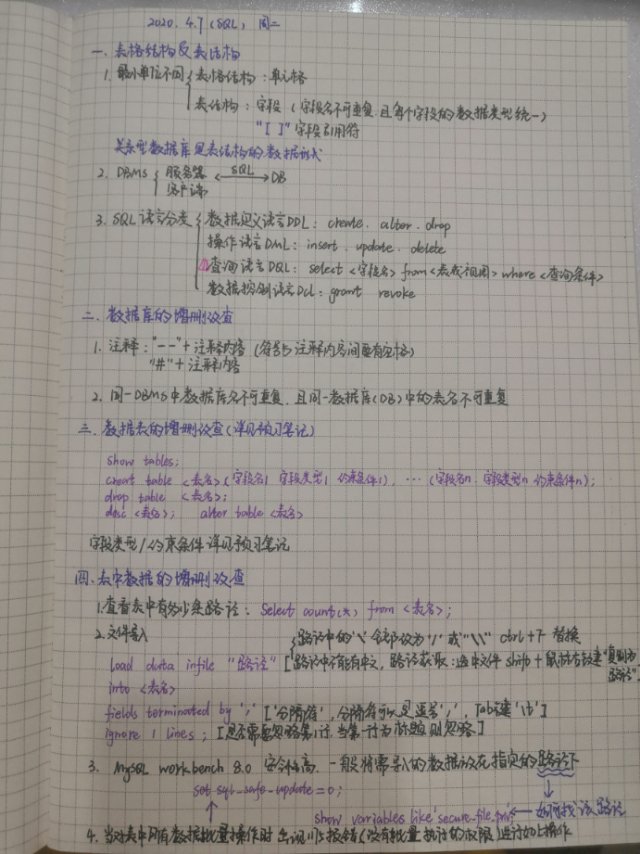 2020.4.7 (SQL) 周二
一、表格结构及表结构
1. 最小单位不同 { 表格结构：单元格
表结构：字段（字段名不可重复，且每个字段的数据类型统一）
"[ ]" 字段引用符
关系型数据库是表结构的数据
2. DBMS { 服务器 ←SQL→ DB
客户端
3. SQL语言分类 { 数据定义语言DDL：create. alter. drop
操作语言DML：insert. update. delete
△查询语言DQL：select <字段名> from <表或视图> where <查询条件>
数据控制语言DCL：grant revoke
二、数据库的增删改查
1. 注释："--"+注释内容（符号与注释内容间要有空格）
"#"+注释内容
2. 同一DBMS中数据库名不可重复，且同一数据库(DB)中的表名不可重复
三、数据表的增删改查(详见预习笔记)
show tables;
creat table <表名> (字段名1 字段类型1 约束条件1), ... (字段名n. 字段类型n 约束条件n);
drop table <表名>;
desc <表名>; alter table <表名>
字段类型/约束条件详见预习笔记
四、表中数据的增删改查
1. 查看表中有多少条路径：Select count(*) from <表名>;
2. 文件导入 { 路径中的'\'全部改为'/'或"\\" ctrl+F 替换
Load data infile "路径" [路径中不能有中文，路径获取：选中文件 shift+鼠标右键"复制为路径"]
into <表名>
fields terminated by ',' ['分隔符'，分隔符可以是逗号','，Tab键'\t']
ignore 1 lines; [是否需要忽略第1行，当第一行为标题则忽略]
3. MySQL workbench 8.0 安全性高，一般将需导入的数据放在指定的路径下
set sql_safe_update=0;
show variables like 'secure_file_priv' ← 如何找该路径
4. 当对表中所有数据批量操作时出现报错(没有批量执行的权限)进行如上操作